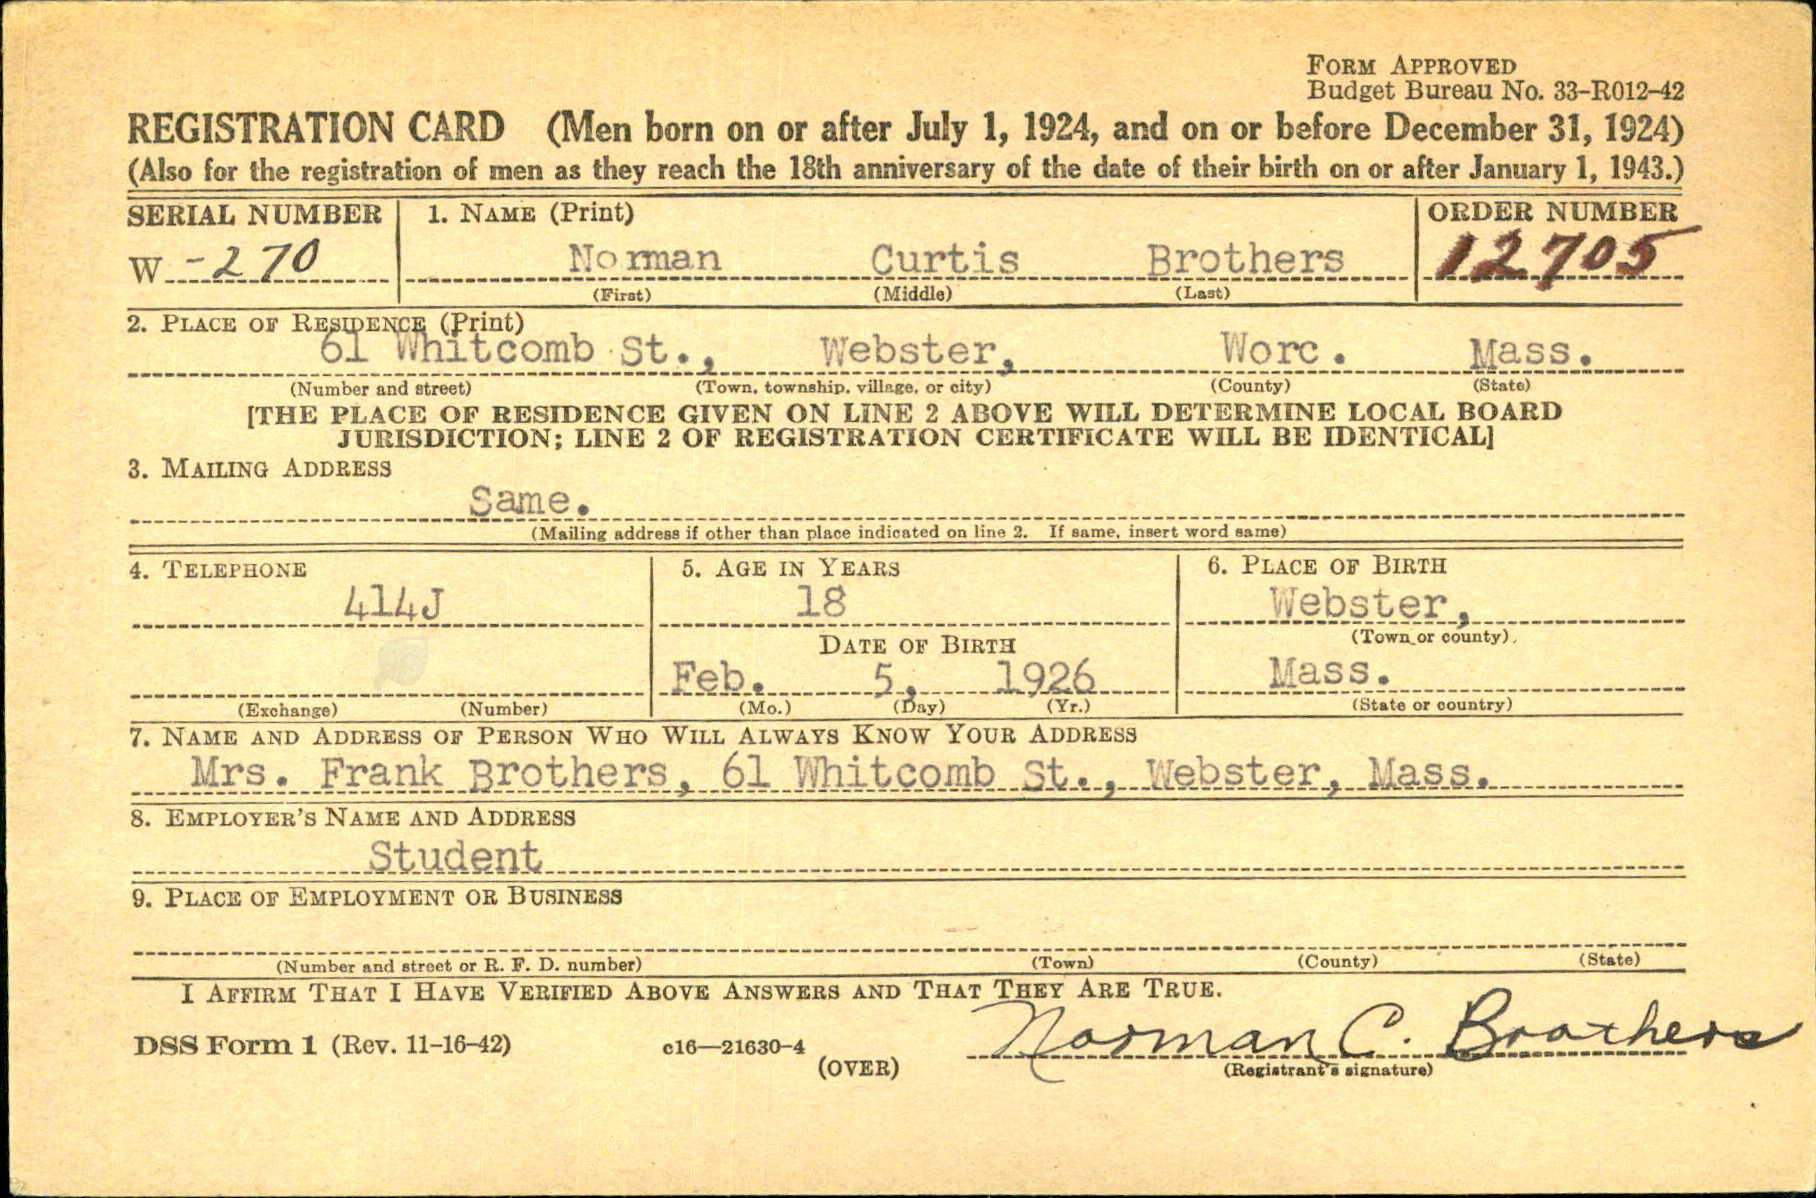 FORM APPROVED
Budget Bureau No. 33-R012-42
REGISTRATION CARD (Men born on or after July 1, 1924, and on or before December 31, 1924)
(Also for the registration of men as they reach the 18th anniversary of the date of their birth on or after January 1, 1943.)
SERIAL NUMBER 1. NAME (Print) ORDER NUMBER
W -270 Norman Curtis Brothers 12705
(First) (Middle) (Last)
2. PLACE OF RESIDENCE (Print)
61 Whitcomb St., Webster, Worc. Mass.
(Number and street) (Town, township, village, or city) (County) (State)
[THE PLACE OF RESIDENCE GIVEN ON LINE 2 ABOVE WILL DETERMINE LOCAL BOARD
JURISDICTION; LINE 2 OF REGISTRATION CERTIFICATE WILL BE IDENTICAL]
3. MAILING ADDRESS
Same.
(Mailing address if other than place indicated on line 2. If same, insert word same)
4. TELEPHONE 5. AGE IN YEARS 6. PLACE OF BIRTH
414J 18 Webster,
(Town or county)
DATE OF BIRTH
Feb. 5, 1926 Mass.
(Exchange) (Number) (Mo.) (Day) (Yr.) (State or country)
7. NAME AND ADDRESS OF PERSON WHO WILL ALWAYS KNOW YOUR ADDRESS
Mrs. Frank Brothers, 61 Whitcomb St., Webster, Mass.
8. EMPLOYER'S NAME AND ADDRESS
Student
9. PLACE OF EMPLOYMENT OR BUSINESS
(Number and street or R. F. D. number) (Town) (County) (State)
I AFFIRM THAT I HAVE VERIFIED ABOVE ANSWERS AND THAT THEY ARE TRUE.
DSS Form 1 (Rev. 11-16-42) c16—21630-4 Norman C. Brothers
(OVER) (Registrant's signature)